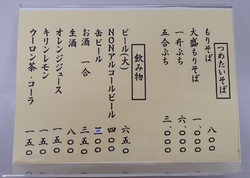 つめたいそば
もりそば 八〇〇
大盛もりそば
一升ぶち 六、〇〇〇
五合ぶち 三、〇〇〇
飲み物
ビール(大) 六五〇
NONアルコールビール 四〇〇
缶ビール 三〇〇
お酒 一合 三五〇
生酒 八〇〇
オレンジジュース 一五〇
キリンレモン 一五〇
ウーロン茶・コーラ 一五〇